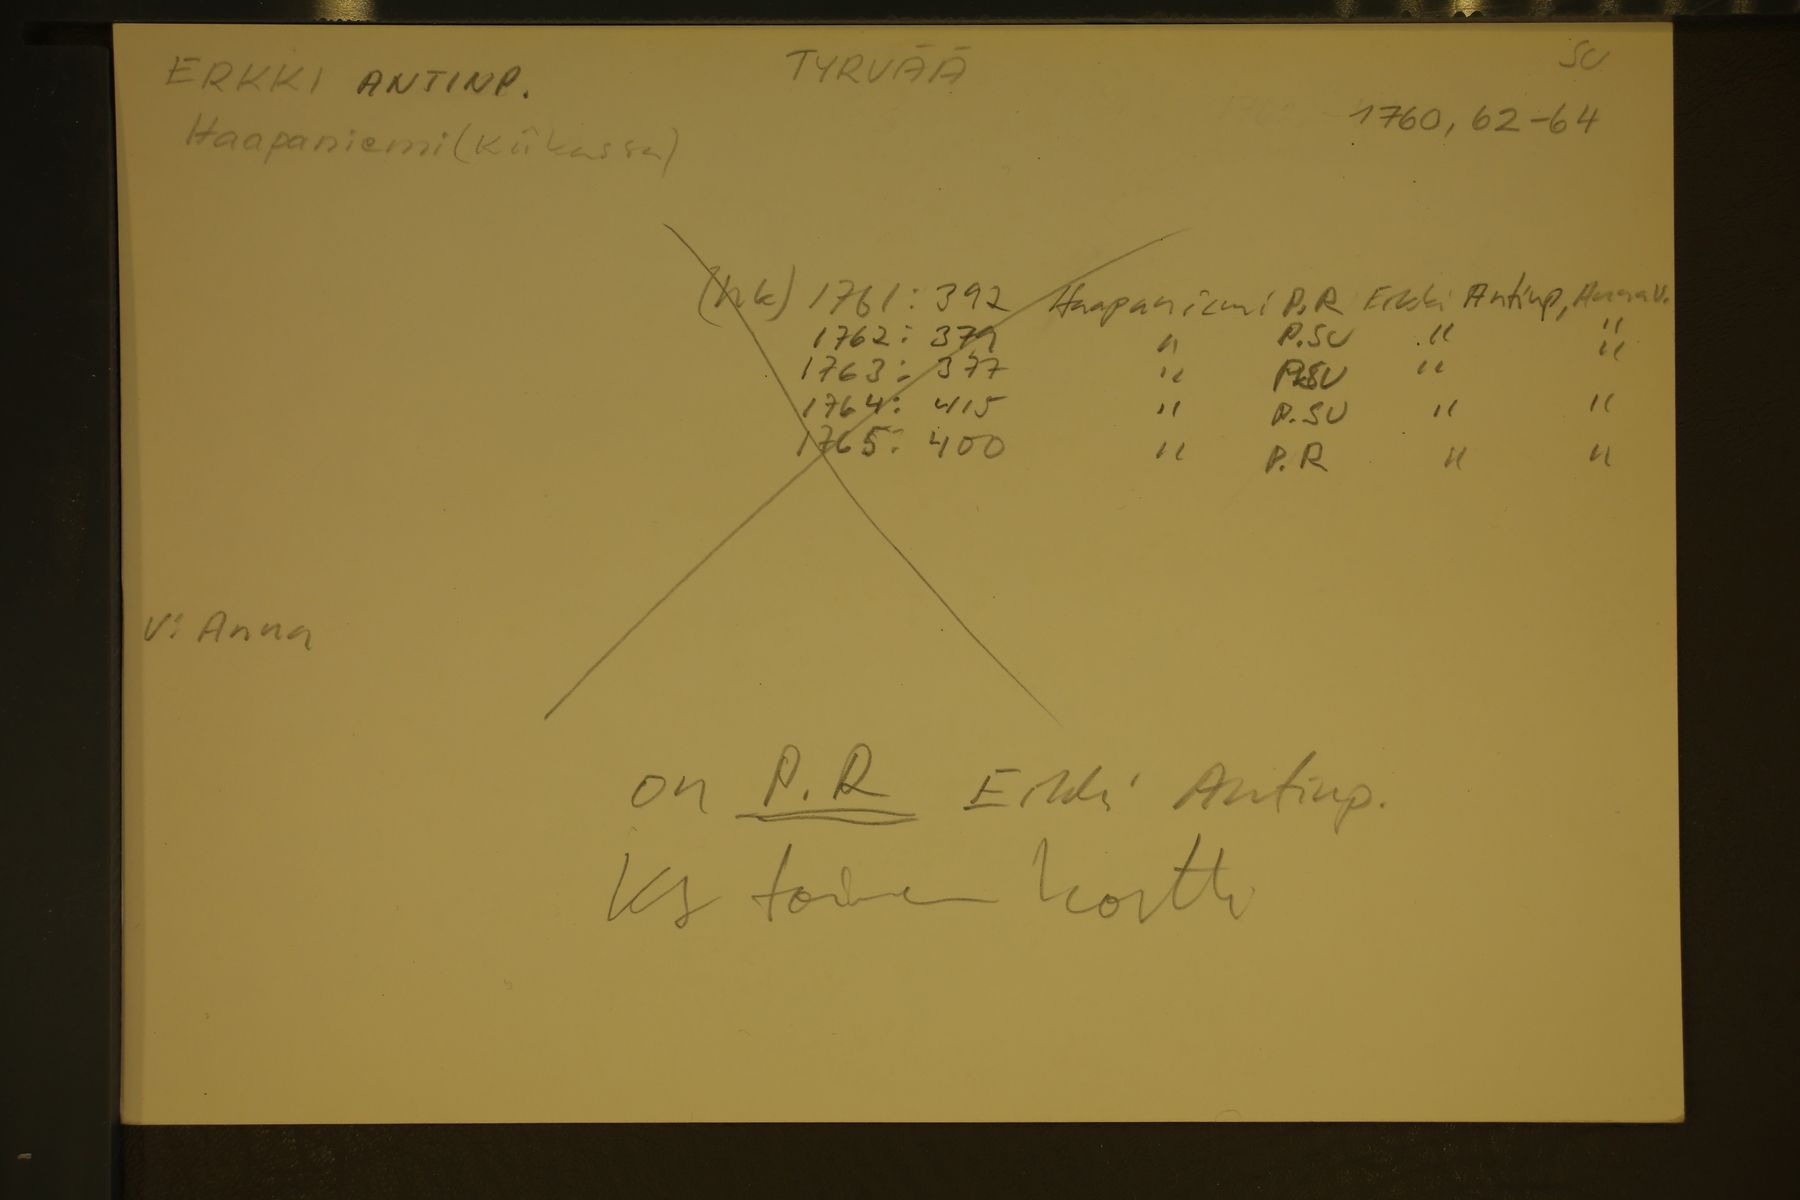 ERKKI ANTINP. TYRVÄÄ SU
1760, 62-64
Haapaniemi (Kiikassa)
(hk) 1761: 392 Haapaniemi P.R Erkki Antinp, Anna v.
1762: 379 " P.SU " "
1763: 377 " P.SU " "
1764: 415 " P.SU " "
1765: 400 " P.R " "
V: Anna
on P.R Erkki Antinp.
Ks toinen kortti